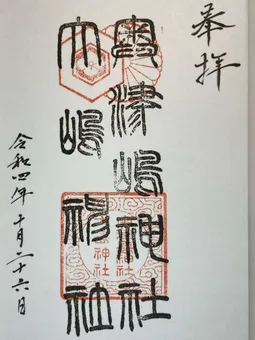 奉拝
奥津嶋神社
大嶋神社
令和四年十月二十六日